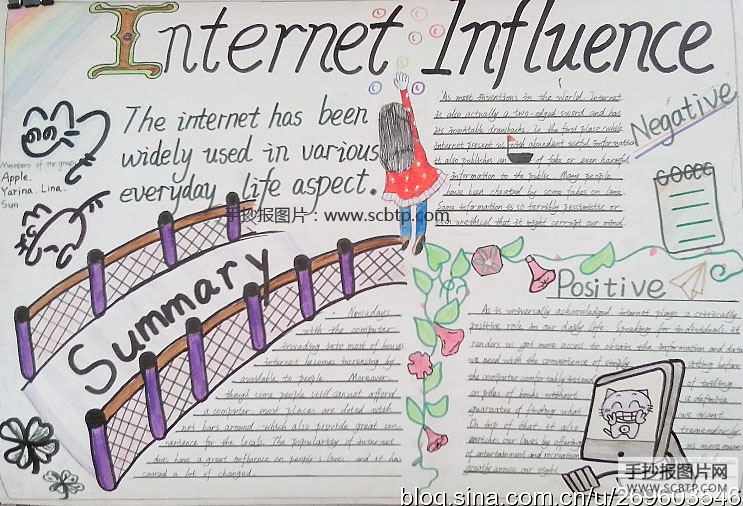 Internet Influence
The internet has been
widely used in various
everyday life aspect.
Members of the group:
Apple.
Yarina. Lina.
Sun
手抄报图片：www.scbtp.com
Negative
As most inventions in the world. Internet
is also actually a two-edged sword and has
its inevitable drawbacks. In the first place while
internet present us with abundant useful information
it also publishes an of fake or even harmful
information to the public. Many people
have been cheated by some fakes on
Some information is so terribly pessimistic or
even unethical that it might corrupt our mind.
Summary
Nowadays
with the computer
invading into most of
internet becomes increasing
available to people. Moreover
though some people still cannot afford
a computer most places are doted with
net bars around which also provide great con-
venience for the locals. The popularity of internet
does have a great influence on people's lives. and it has
caused a lot of changed.
Positive
As is universally acknowledged internet plays a critically
positive role in our daily life. Speaking for individuals it
renders us get more access to obtain the information and
we need with the convenience of simply sitting before
the computer comfortably of
on piles of books without a definite
guarantee of finding what we want
On top of that it also tremendously
enriches our lives by offering us more means
of entertainment and recreation
greatly
手抄报图片网
WWW.SCBTP.COM
blog.sina.com.cn/u/269603646